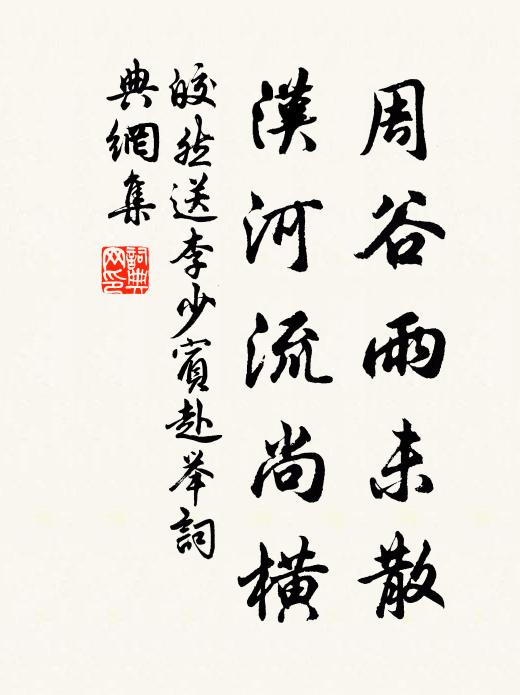 周谷雨未散
漢河流尚橫
皎然送李少賓赴举詞
典網集
詞典
网印